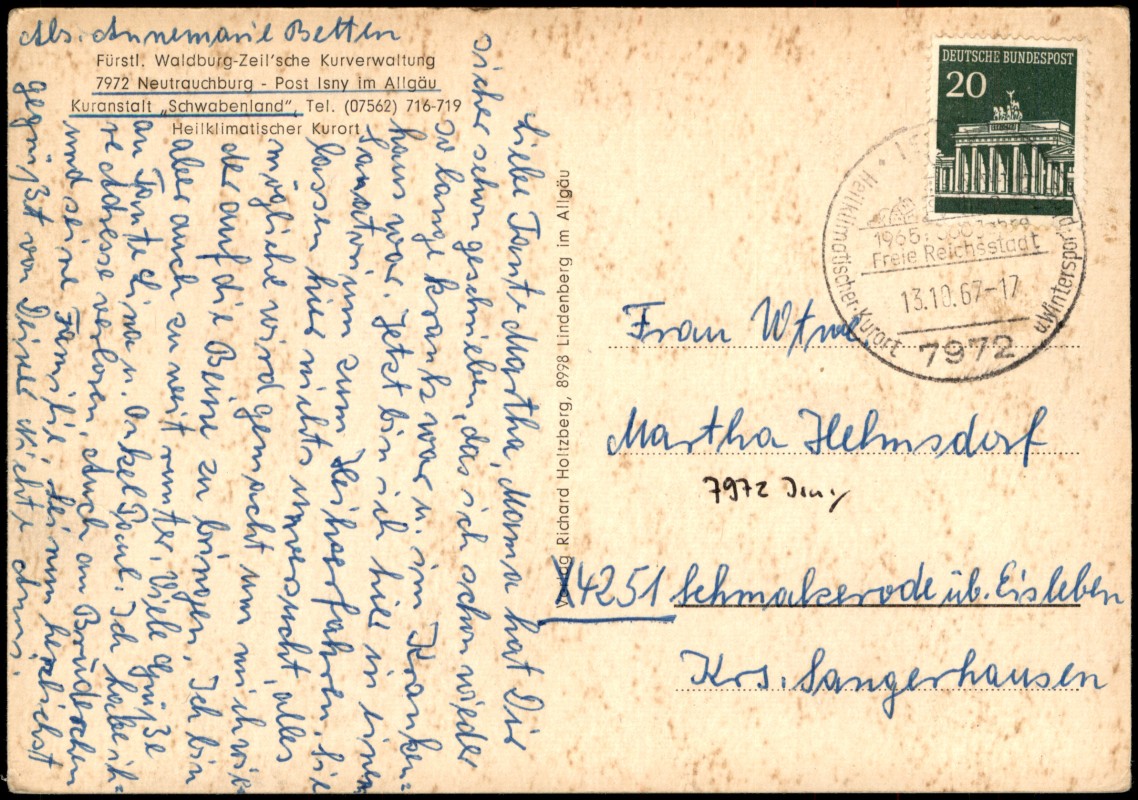 Abs. Annemarie Betten
Fürstl. Waldburg-Zeil'sche Kurverwaltung
7972 Neutrauchburg - Post Isny im Allgäu
Kuranstalt „Schwabenland“, Tel. (07562) 716-719
Heilklimatischer Kurort
Liebe Tante Martha, Mama hat Dir
sicher schon geschrieben, das ich schon wieder
so lange krank war u. im Kranken-
haus war. Jetzt bin ich hier in einem
Sanatorium zum Heilverfahren. Sie
lassen hier nichts unversucht, alles
mögliche wird gemacht um mich wie
der auf die Beine zu bringen. Ich bin
aber auch zu weit runter. Viele Grüße
an Tante Lina u. Onkel Paul. Ich habe ih-
re Adresse verloren. Auch an Brüderchen
und seine Familie. Sei nun herzlichst
gegrüßt von Deiner Nichte Anni.
Verlag Richard Holtzberg, 8998 Lindenberg im Allgäu
DEUTSCHE BUNDESPOST
20
Heilklimatischer Kurort
Wintersport
1965: 600 Jahre
Freie Reichsstadt
13.10.67-17
7972
Frau Wtwe.
Martha Helmsdorf
7972 Isny
X4251 Schmalzerode üb. Eisleben
Krs. Sangerhausen